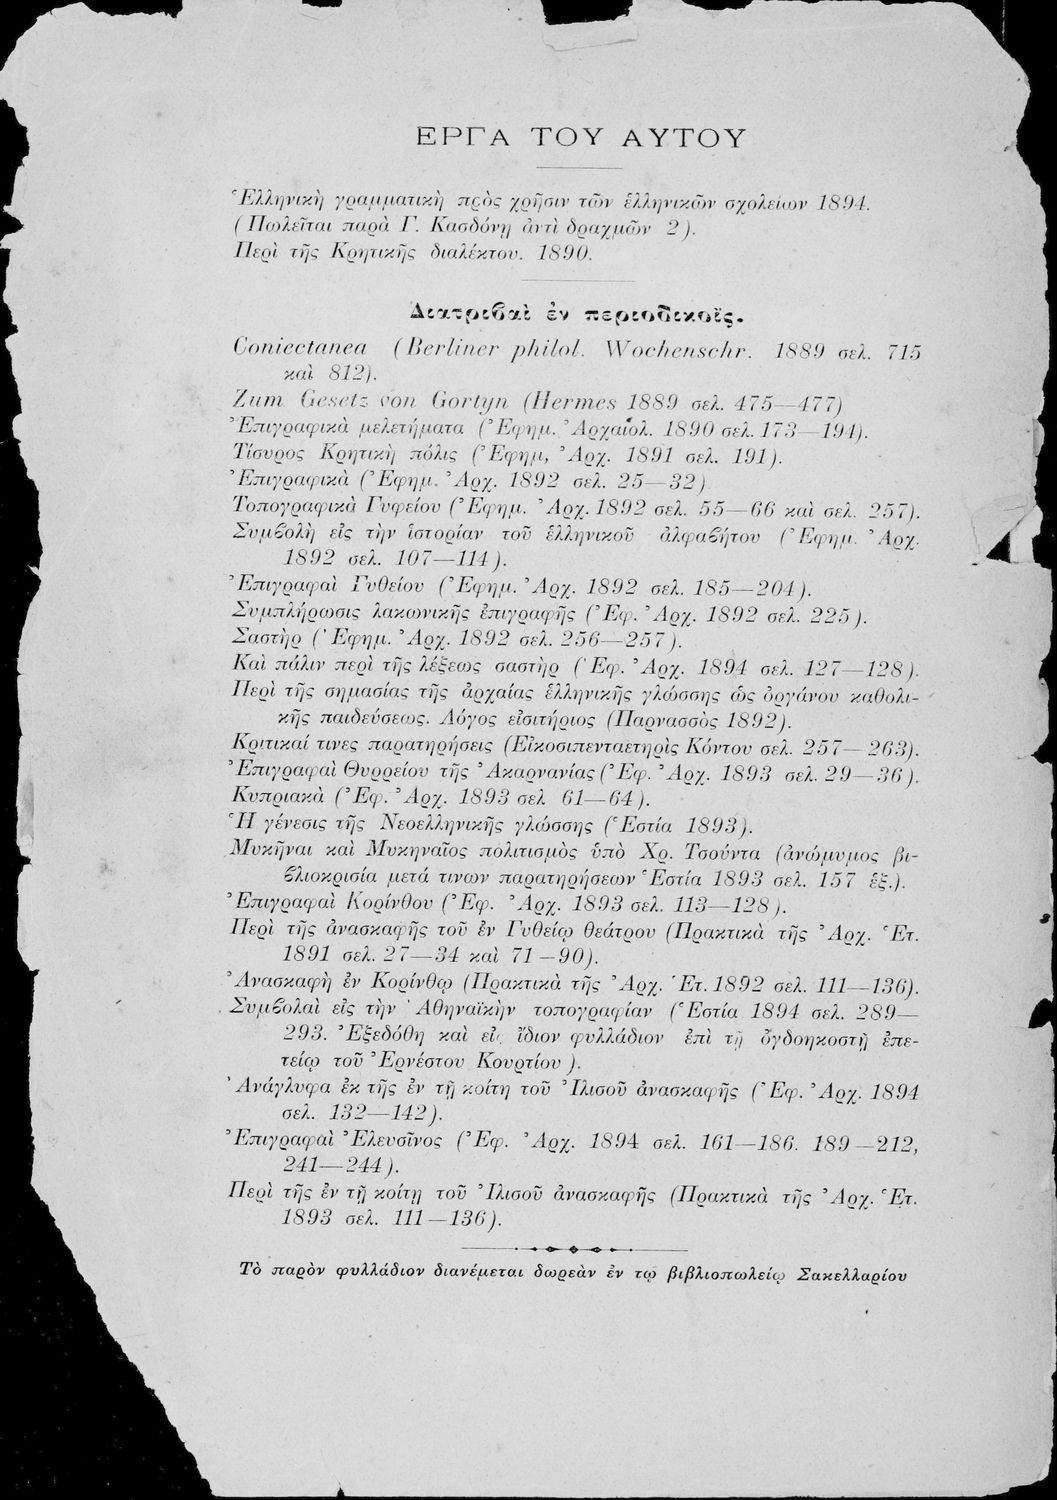 ΕΡΓΑ ΤΟΥ ΑΥΤΟΥ
Ἑλληνικὴ γραμματικὴ πρὸς χρῆσιν τῶν ἑλληνικῶν σχολείων 1894.
(Πωλεῖται παρὰ Γ. Κασδόνῃ ἀντὶ δραχμῶν 2).
Περὶ τῆς Κρητικῆς διαλέκτου. 1890.
Διατριβαὶ ἐν περιοδικοῖς.
Coniectanea (Berliner philol. Wochenschr. 1889 σελ. 715
καὶ 812).
Zum Gesetz von Gortyn (Hermes 1889 σελ. 475—477)
Ἐπιγραφικὰ μελετήματα (Ἐφημ. Ἀρχαιολ. 1890 σελ. 173—194).
Τίσυρος Κρητικὴ πόλις (Ἐφημ, Ἀρχ. 1891 σελ. 191).
Ἐπιγραφικὰ (Ἐφημ. Ἀρχ. 1892 σελ. 25—32)
Τοπογραφικὰ Γυφείου (Ἐφημ. Ἀρχ. 1892 σελ. 55—66 καὶ σελ. 257).
Συμϐολὴ εἰς τὴν ἱστορίαν τοῦ ἑλληνικοῦ ἀλφαϐήτου (Ἐφημ. Ἀρχ.
1892 σελ. 107—114).
Ἐπιγραφαὶ Γυθείου (Ἐφημ. Ἀρχ. 1892 σελ. 185—204).
Συμπλήρωσις λακωνικῆς ἐπιγραφῆς (Ἐφ. Ἀρχ. 1892 σελ. 225).
Σαστὴρ (Ἐφημ. Ἀρχ. 1892 σελ. 256—257).
Καὶ πάλιν περὶ τῆς λέξεως σαστὴρ (Ἐφ. Ἀρχ. 1894 σελ. 127—128).
Περὶ τῆς σημασίας τῆς ἀρχαίας ἑλληνικῆς γλώσσης ὡς ὀργάνου καθολι-
κῆς παιδεύσεως. Λόγος εἰσιτήριος (Παρνασσὸς 1892).
Κριτικαί τινες παρατηρήσεις (Εἰκοσιπενταετηρὶς Κόντου σελ. 257—263).
Ἐπιγραφαὶ Θυρρείου τῆς Ἀκαρνανίας (Ἐφ. Ἀρχ. 1893 σελ. 29—36).
Κυπριακὰ (Ἐφ. Ἀρχ. 1893 σελ 61—64).
Ἡ γένεσις τῆς Νεοελληνικῆς γλώσσης (Ἑστία 1893).
Μυκῆναι καὶ Μυκηναῖος πολιτισμὸς ὑπὸ Χρ. Τσούντα (ἀνώμυμος βι-
ϐλιοκρισία μετά τινων παρατηρήσεων Ἑστία 1893 σελ. 157 ἑξ.).
Ἐπιγραφαὶ Κορίνθου (Ἐφ. Ἀρχ. 1893 σελ. 113—128).
Περὶ τῆς ἀνασκαφῆς τοῦ ἐν Γυθείῳ θεάτρου (Πρακτικὰ τῆς Ἀρχ. Ἑτ.
1891 σελ. 27—34 καὶ 71—90).
Ἀνασκαφὴ ἐν Κορίνθῳ (Πρακτικὰ τῆς Ἀρχ. Ἑτ. 1892 σελ. 111—136).
Συμϐολαὶ εἰς τὴν Ἀθηναϊκὴν τοπογραφίαν (Ἑστία 1894 σελ. 289—
293. Ἐξεδόθη καὶ εἰς ἴδιον φυλλάδιον ἐπὶ τῇ ὀγδοηκοστῇ ἐπε-
τείῳ τοῦ Ἐρνέστου Κουρτίου).
Ἀνάγλυφα ἐκ τῆς ἐν τῇ κοίτῃ τοῦ Ἰλισοῦ ἀνασκαφῆς (Ἐφ. Ἀρχ. 1894
σελ. 132—142).
Ἐπιγραφαὶ Ἐλευσῖνος (Ἐφ. Ἀρχ. 1894 σελ. 161—186. 189—212,
241—244).
Περὶ τῆς ἐν τῇ κοίτῃ τοῦ Ἰλισοῦ ἀνασκαφῆς (Πρακτικὰ τῆς Ἀρχ. Ἑτ.
1893 σελ. 111—136).
Τὸ παρὸν φυλλάδιον διανέμεται δωρεὰν ἐν τῳ βιβλιοπωλείῳ Σακελλαρίου